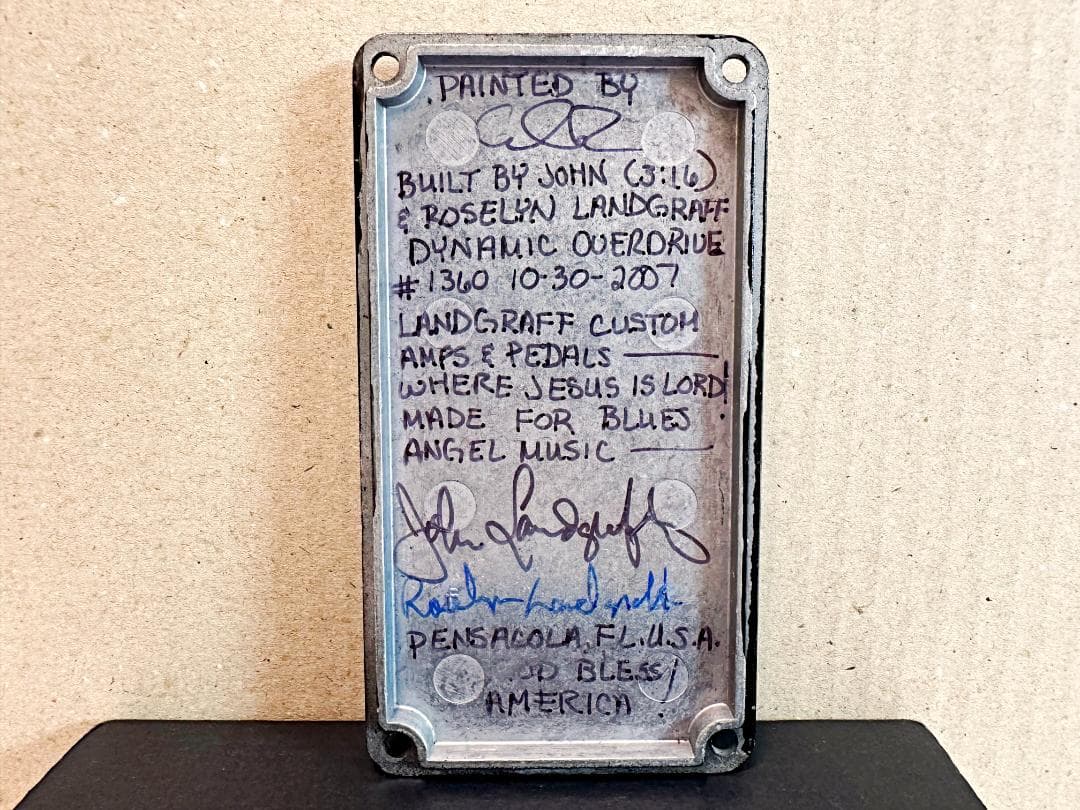 PAINTED BY
BUILT BY JOHN (3:16)
& ROSELYN LANDGRAFF
DYNAMIC OVERDRIVE
#1360 10-30-2007
LANDGRAFF CUSTOM
AMPS & PEDALS —
WHERE JESUS IS LORD!
MADE FOR BLUES
ANGEL MUSIC —
John Landgraff
Roselyn Landgraff
PENSACOLA, FL. U.S.A.
BLESS
AMERICA!